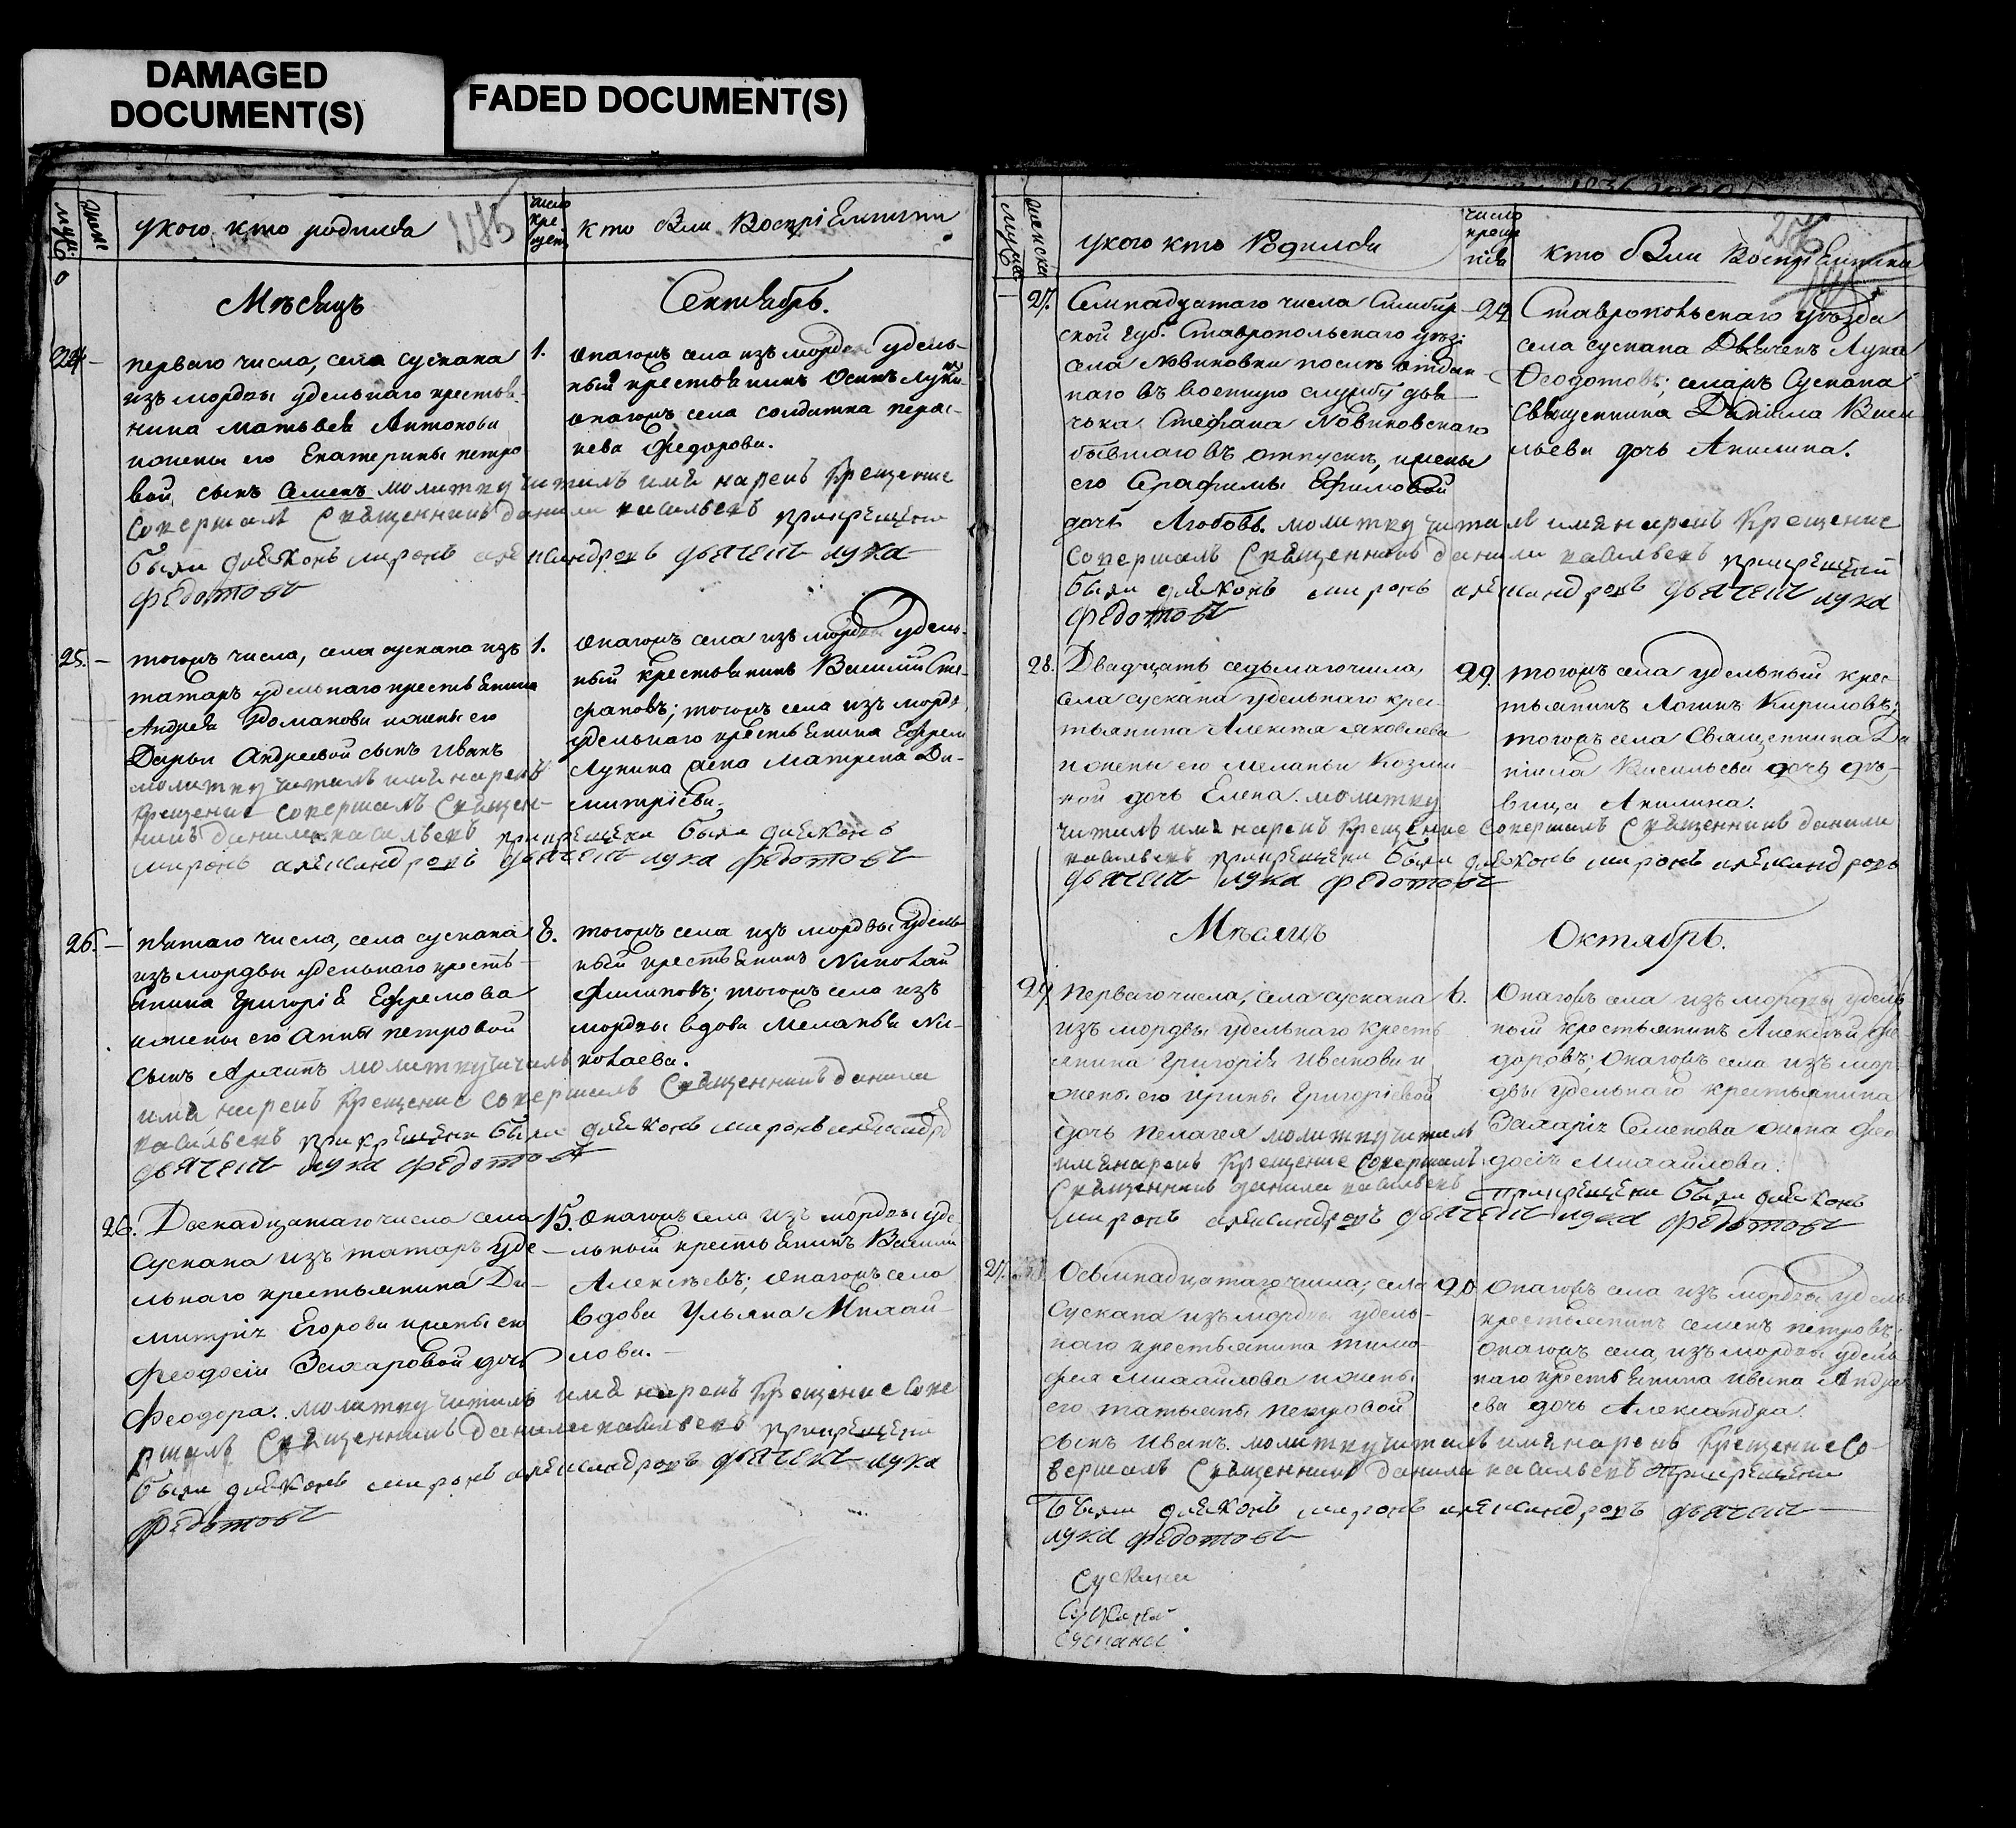 DAMAGED
DOCUMENT(S)
FADED DOCUMENT(S)
у кого кто родился
число
кре
щен
кто были Воспрiемники
Мѣсяцъ
Сентябрь.
24.
перваго числа, села сускана
изъ мордвы удѣльнаго крестья-
нина Матвея Антонова
и жены его Екатерины петро
вой сынъ Семенъ молитву читалъ имя нарекъ Крещение
совершалъ Священникъ данила васильевъ прикрещени
были дияконъ миронъ александровъ дьячекъ лука
федотовъ
1.
онагожъ села изъ мордвы удѣль-
ный крестьянинъ Осипъ Лукинъ
онагожъ села солдатка параск-
Федорова.
25.
тогожъ числа, села сускана изъ
татаръ удельнаго крестьянина
Андрея Романова и жены его
Дарьи Андреевой сынъ Иванъ
молитву читалъ имя нарекъ
Крещение совершалъ Священ-
никъ данила васильевъ прикрещени были дияконъ
миронъ александровъ дьячекъ лука федотовъ
1.
онагожъ села изъ мордвы удель-
ный крестьянинъ Василий Сте-
фановъ; тогожъ села изъ мордв.
удельнаго крестьянина Ефрема
Лукина жена Матрена Ди-
митрiева.
26.
пятаго числа, села сускана
изъ мордвы удельнаго кресть-
янина Григорiя Ефремова
и жены его Анны петровой
сынъ Архипъ молитву читалъ
имя нарекъ Крещение совершалъ Священникъ данила
васильевъ прикрещени были дияконъ миронъ александро
дьячекъ лука федотовъ
8.
тогожъ села изъ мордвы удель-
ный крестьянинъ Николай
Филиповъ; тогожъ села изъ
мордвы вдова Меланья Ни-
колаева.
26.
Двенадцатаго числа села
Сускана изъ татаръ уде-
льнаго крестьянина Ди-
митрiя Егорова и жены его
Феодосiи Захаровой дочь
Феодора. молитву читалъ имя нарекъ Крещение сове
ршалъ Священникъ данила васильевъ прикрещени
были дияконъ миронъ александровъ дьячекъ лука
федотовъ
15.
Онагожъ села изъ мордвы уде-
льный крестьянинъ Василий
Алексѣевъ; онагожъ села
вдова Ульяна Михай-
лова.
у кого кто Родился
число
креще
нiя
кто были Воспрiемники
27.
Семнадцатаго числа Симбир-
ской губ. Ставропольскаго уѣз.
села Новиковки послѣ отдан-
наго въ военную службу дья-
чка Стефана Новиковскаго
бывшаго въ отпуски, и жены
его Серафимы Ефимовой
дочь Любовь. молитву читалъ имя нарекъ Крещение
совершалъ Священникъ данила васильевъ прикрещени
были дияконъ миронъ александровъ дьячекъ лука
федотовъ
24
Ставропольскаго уѣзда
села сускана Дьячекъ Лука
Феодотовъ; села Сускана
Священника Данiила Васи
льева дочь Акилина.
28.
Двадцать седьмаго числа,
села сускана удельнаго крес-
тьянина Алексѣя Яковлева
и жены его Меланьи Козми-
ной дочь Елена. молитву
читалъ имя нарекъ Крещение совершалъ Священникъ данила
васильевъ прикрещени были дияконъ миронъ александровъ
дьячекъ лука федотовъ
29.
тогожъ села удельный крес-
тьянинъ Логинъ Кириловъ;
тогожъ села Священника Да
нiила Васильева дочь дѣ-
вица Акилина.
Мѣсяцъ
Октябрь.
29
Перваго числа, села сускана
изъ мордвы удельнаго кресть
янина Григорiя Иванова и
жены его Ирины Григорiевой
дочь Пелагея молитву читалъ
имя нарекъ Крещение совершалъ
Священникъ данила васильевъ прикрещени были дияконъ
миронъ александровъ дьячекъ лука федотовъ
6.
Онагожъ села изъ мордвы удель
ный крестьянинъ Алексѣй Фе-
доровъ; Онагожъ села изъ мор-
двы удельнаго крестьянина
Захарiя Семенова жена Фео
досiя Михайлова.
27.
Осьмнадцатаго числа, села
Сускана изъ мордвы удель-
наго крестьянина Тимо-
фея Михайлова и жены
его Татьяны Петровой
сынъ Иванъ. молитву читалъ имя нарекъ Крещение Со-
вершалъ Священникъ данила васильевъ прикрещени
были дияконъ миронъ александровъ дьячекъ
лука федотовъ
20
Онагожъ села изъ мордвы удель
крестьянинъ Семенъ Петровъ;
Онагожъ села, изъ мордвы удель
наго крестьянина Ивана Андре
ева дочь Александра.
Сускана
Сускана
Сускана